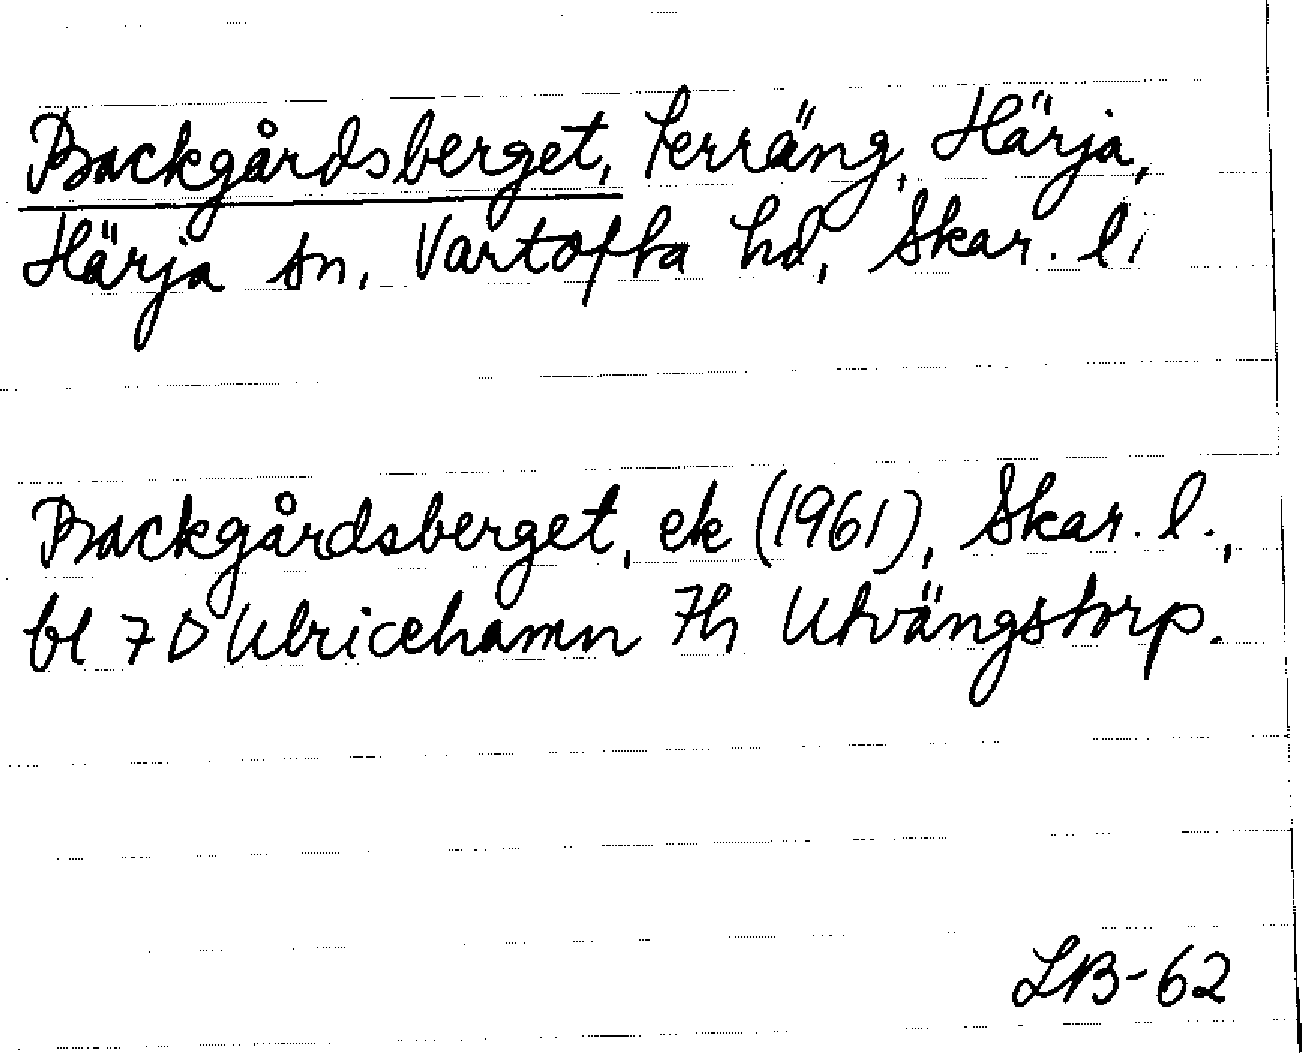 Backgårdsberget, terräng, Härja,
Härja sn, Vartofta hd, Skar. l.
Backgårdsberget, ek (1961), Skar. l.,
bl 7D Ulricehamn 7h Utvängstorp.
LB-62